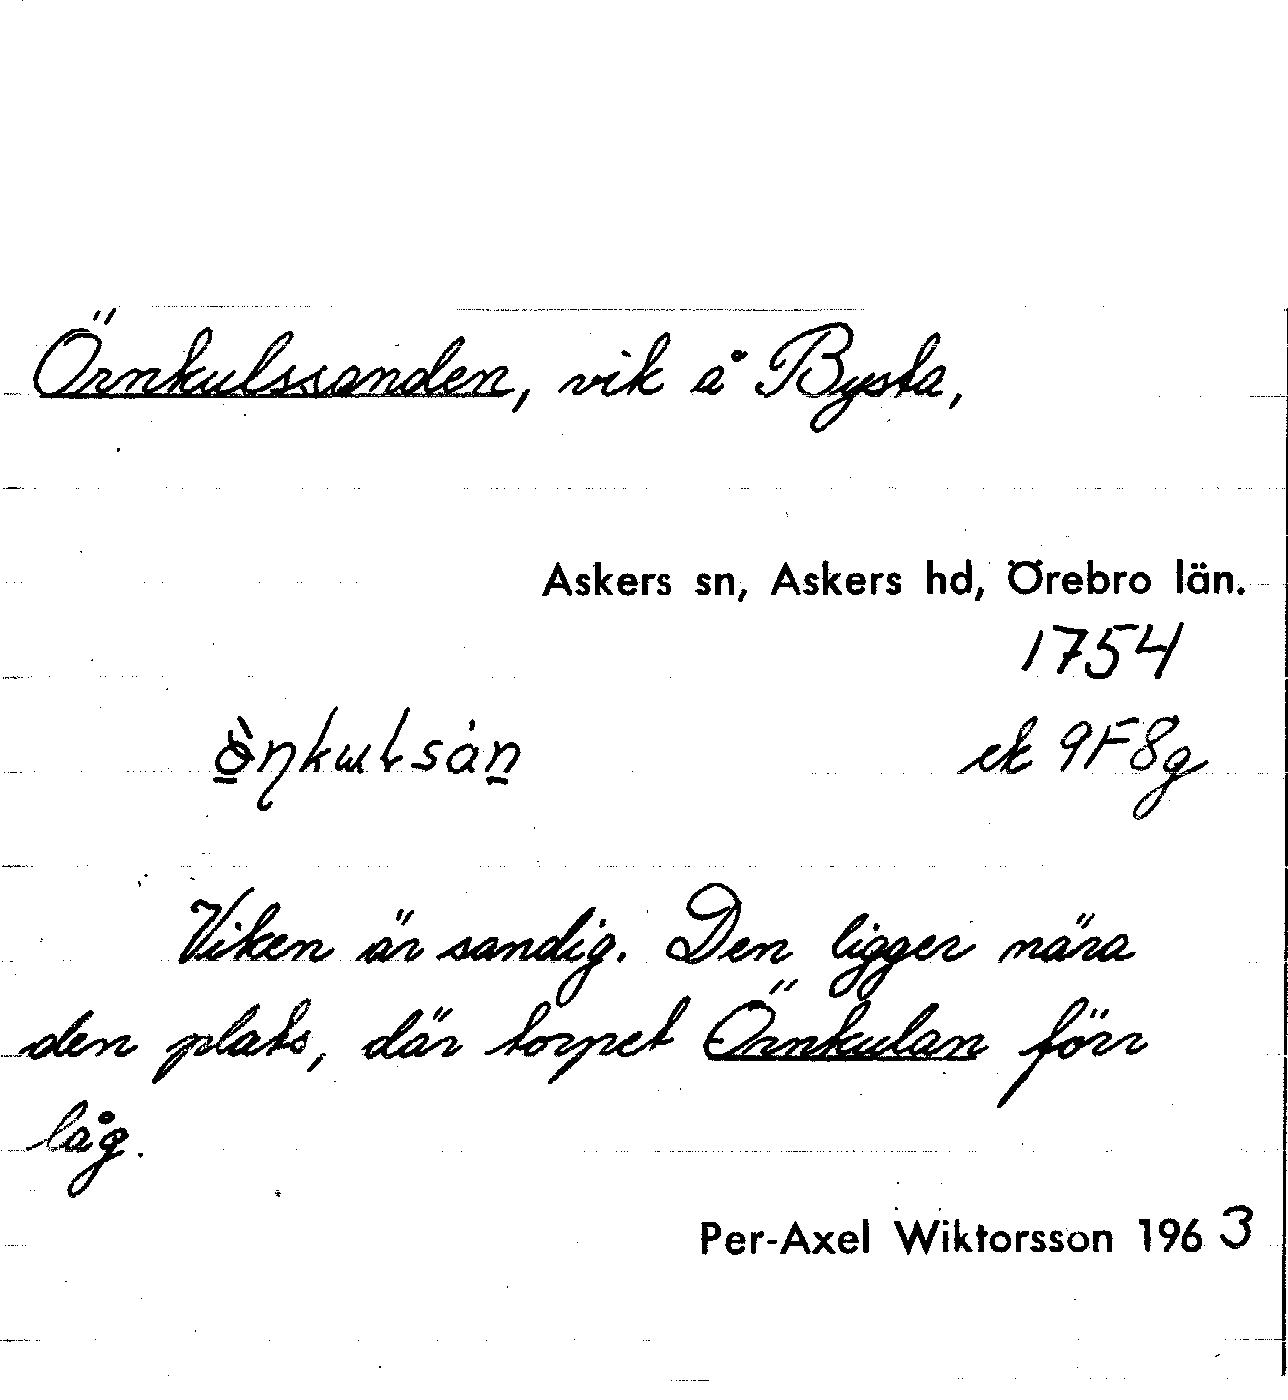 Örnkulssanden, vik å Bysta,
Askers sn, Askers hd, Örebro län.
1754
ek 9F8g
Viken är sandig. Den ligger nära
den plats, där torpet Örnkulan förr
låg.
Per-Axel Wiktorsson 1963